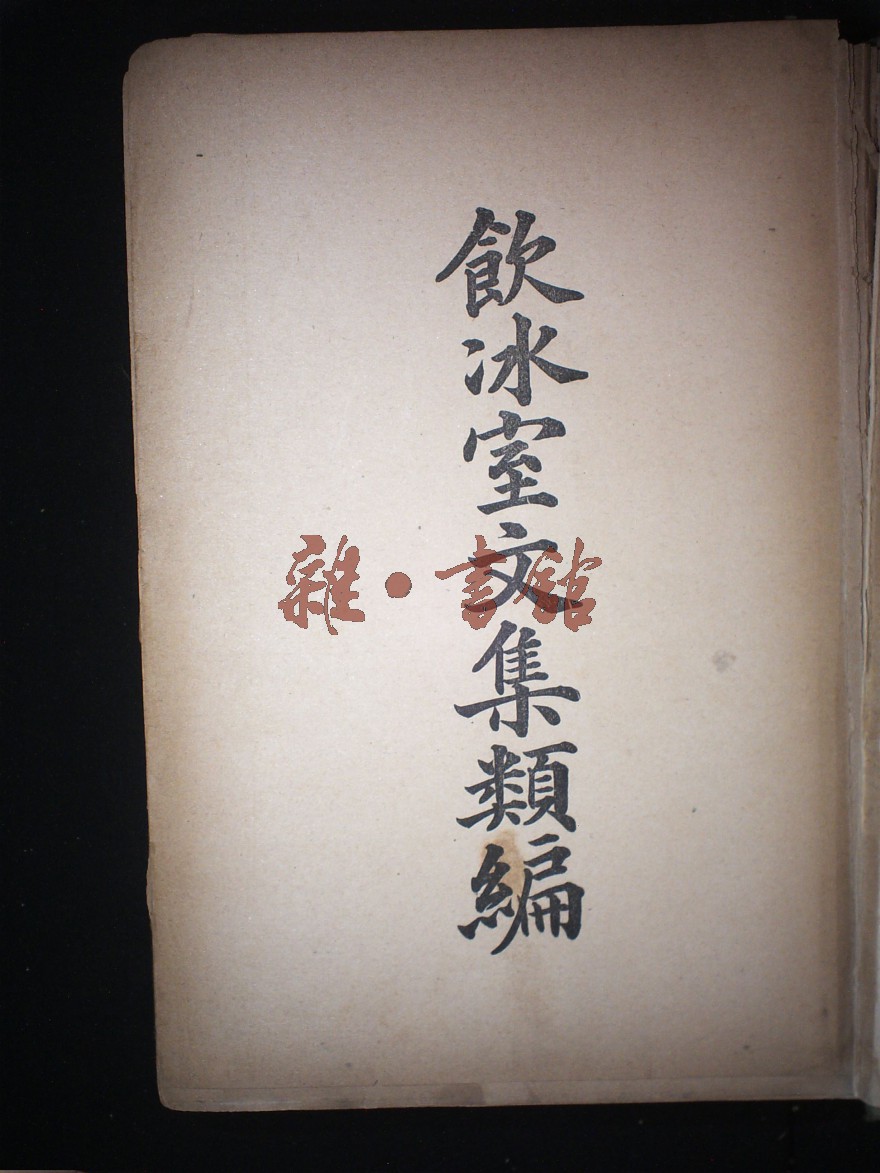 飲冰室文集類編
雜·書館